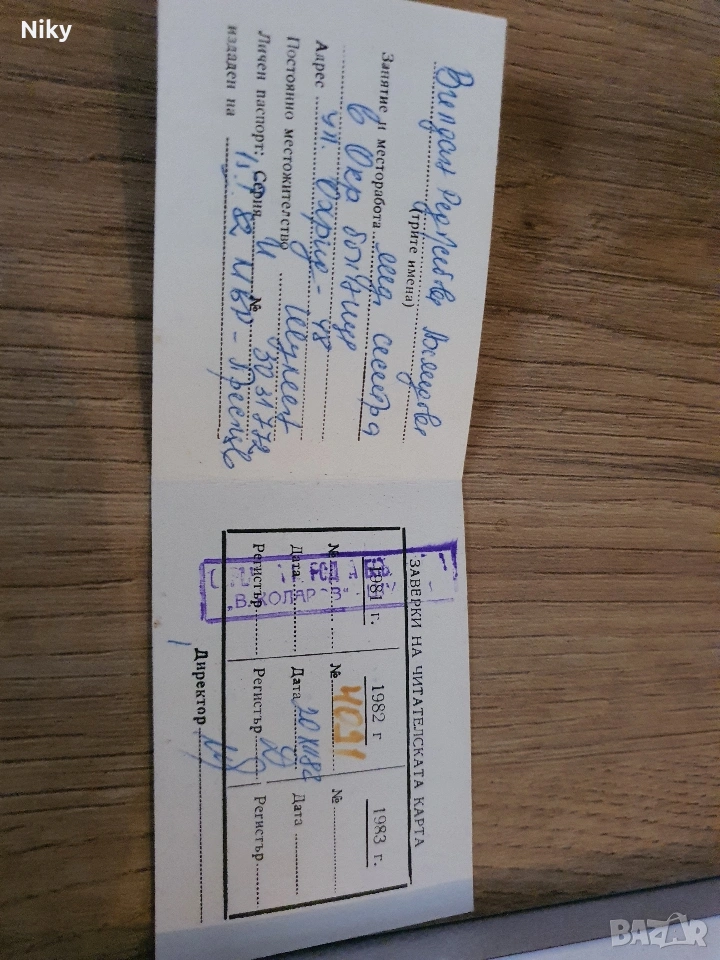 Niky
(трите имена)
Занятие и месторабота мед сестра
в Окр болница
Адрес ул. Охрид - 48
Постоянно местожителство Шумен
Личен паспорт: Серия И № 3031772
издаден на 82 МВР - Преслав
ЗАВЕРКИ НА ЧИТАТЕЛСКАТА КАРТА
1981 г. 1982 г 1983 г.
№ № 4091 №
Дата Дата 20 XII 82 Дата
Регистър Регистър Регистър
В. КОЛАР
Директор
BAZAR